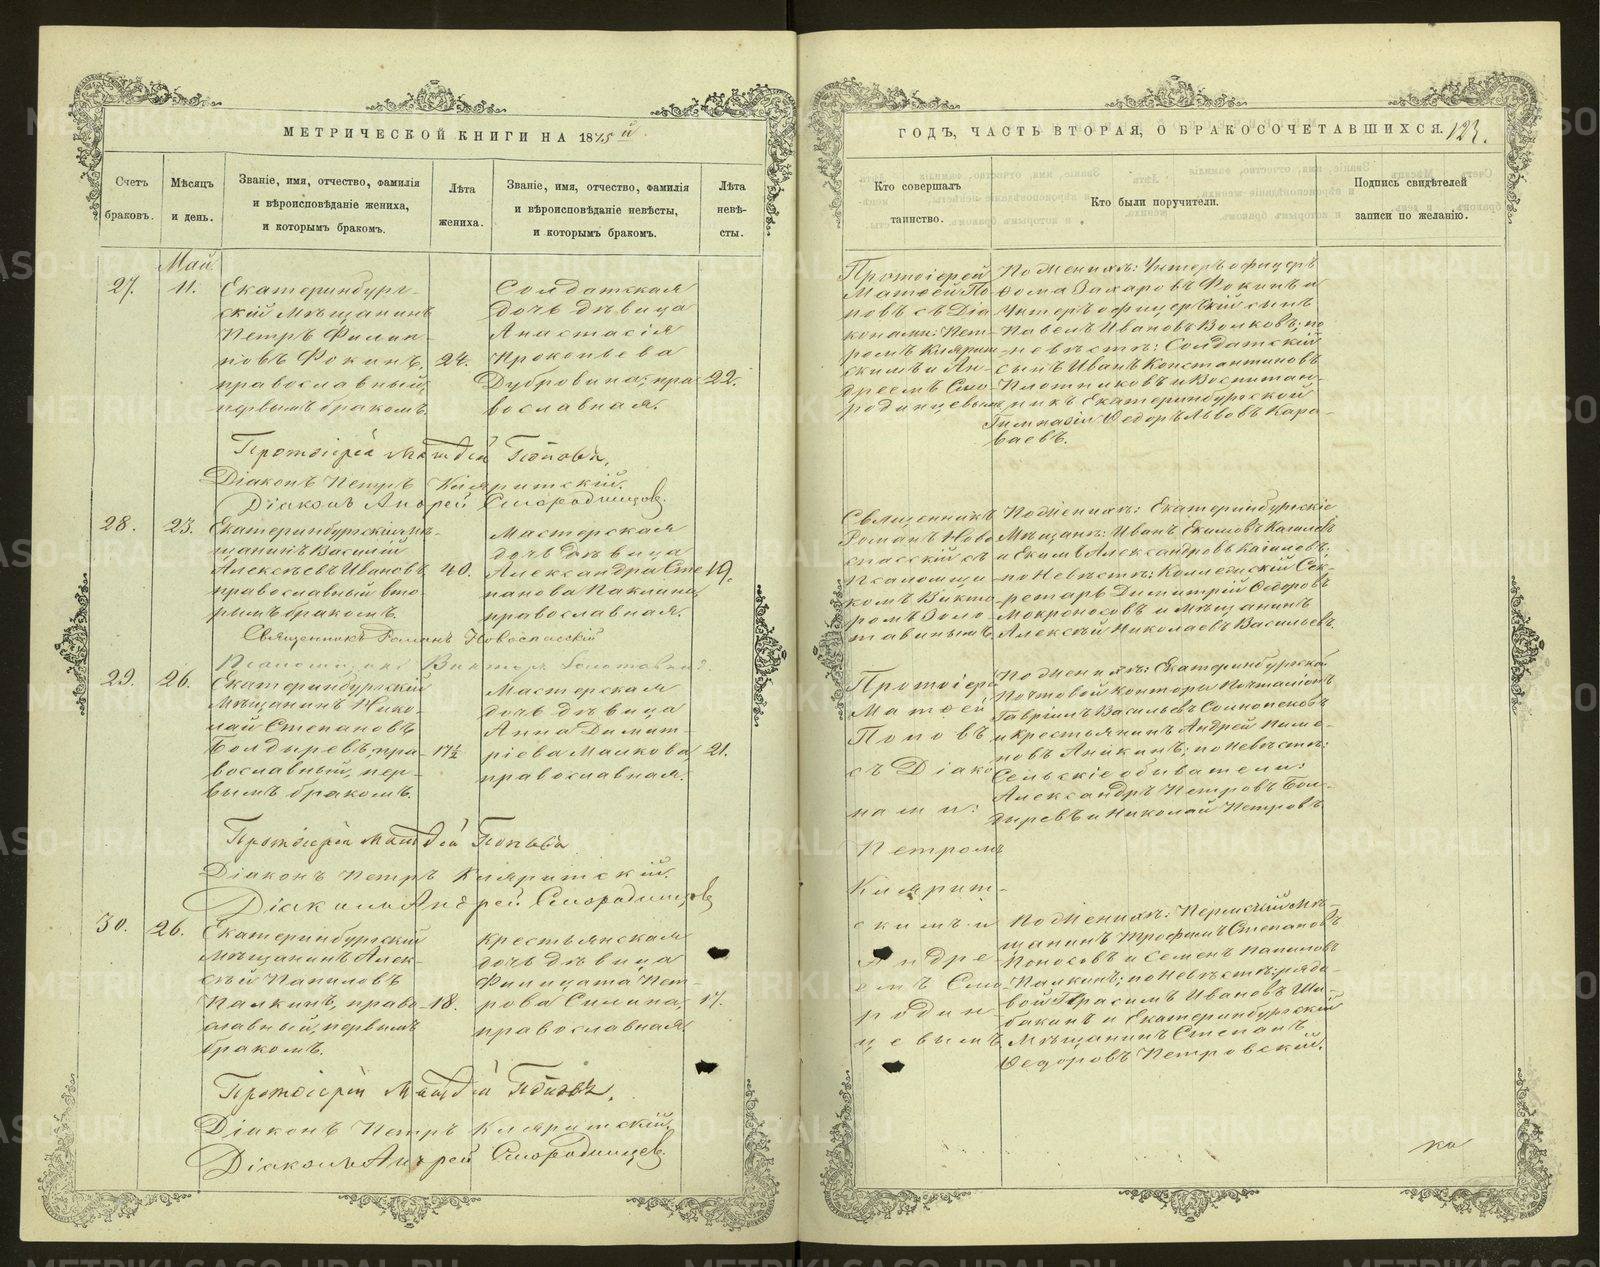 МЕТРИЧЕСКОЙ КНИГИ НА 1875 й
Счетъ браковъ.
Мѣсяцъ и день.
Званіе, имя, отчество, фамилія
и вѣроисповѣданіе жениха,
и которымъ бракомъ.
Лѣта жениха.
Званіе, имя, отчество, фамилія
и вѣроисповѣданіе невѣсты,
и которымъ бракомъ.
Лѣта невѣ-
сты.
Май
27.
11.
Екатеринбург-
скій Мѣщанинъ
Петръ Филип-
повъ Фокинъ,
православный,
первымъ бракомъ.
24.
Солдатская
дочь дѣвица
Анастасія
Прокопьева
Дубровина, пра-
вославная.
22.
Протоіерей Матѳей Поповъ.
Діаконъ Петръ
Діаконъ Андрей Смородинцовъ.
28.
23.
Екатеринбургскій мѣ-
щанинъ Василій
Алексѣевъ Ивановъ,
православный вто-
рымъ бракомъ.
40.
Мастерская
дочь дѣвица
Александра Сте-
панова Паклина,
православная.
19.
Священникъ Романъ Новоспасскій
Псаломщикъ Викторъ Золотавинъ.
29.
26.
Екатеринбургскій
Мѣщанинъ Нико-
лай Степановъ
Болдыревъ, пра-
вославный, пер-
вымъ бракомъ.
17½
Мастерская
дочь дѣвица
Анна Димит-
ріева Малкова,
православная.
21.
Протоіерей Матѳей Поповъ
Діаконъ Петръ
Діаконъ Андрей Смородинцовъ
30.
26.
Екатеринбургскій
Мѣщанинъ Алек-
сѣй Папиловъ
Палкинъ, право-
славный, первымъ
бракомъ.
18.
Крестьянская
дочь дѣвица
Филицата Пет-
рова Силина,
православная.
17.
Протоіерей Матѳей Поповъ.
Діаконъ Петръ
Діаконъ Андрей Смородинцевъ
ГОДЪ, ЧАСТЬ ВТОРАЯ, О БРАКОСОЧЕТАВШИХСЯ.
123.
Кто совершалъ
таинство.
Кто были поручители.
Подпись свидѣтелей
записи по желанію.
Протоіерей
Матѳей По-
повъ съ Діа-
конами: Пет-
ромъ
скимъ и Ан-
дреемъ Смо-
родинцевымъ
По Женихѣ: Унтеръ офицеръ
Ѳома Захаровъ Фокинъ и
Унтеръ офицерскій сынъ
Павелъ Ивановъ Волковъ; по
невѣстѣ: Солдатскій
сынъ Иванъ Константиновъ
Плотниковъ и Воспитан-
никъ Екатеринбургской
Гимназіи Ѳедоръ Львовъ Кара-
ваевъ.
Священникъ
Романъ Ново-
спасскій съ
Псаломщи-
комъ Викто-
ромъ Золо-
тавинымъ
По Женихѣ: Екатеринбургскіе
Мѣщане: Иванъ Екимовъ
и Екимъ Александровъ
по Невѣстѣ: Коллежскій Сек-
ретарь Димитрій Ѳедоровъ
Мокроносовъ и Мѣщанинъ
Алексѣй Николаевъ Васильевъ.
Протоіерей
Матѳей
Поповъ
съ Діако-
нами:
Петромъ
скимъ и
Андре-
емъ Смо-
родин-
цевымъ
По Женихѣ: Екатеринбургской
Почтовой Конторы Почталіонъ
Гавріилъ Васильевъ
и крестьянинъ Андрей
новъ Аникинъ; по Невѣстѣ:
Сельскіе обыватели:
Александръ Петровъ Бол-
дыревъ и Николай Петровъ
По Женихѣ: Пермскій Мѣ-
щанинъ Трофимъ Степановъ
Поносовъ и Семенъ Папиловъ
Палкинъ; по Невѣстѣ: рядо-
вой Герасимъ Ивановъ Ша-
бакинъ и Екатеринбургскій
Мѣщанинъ Степанъ
Ѳедоровъ Петровскій.